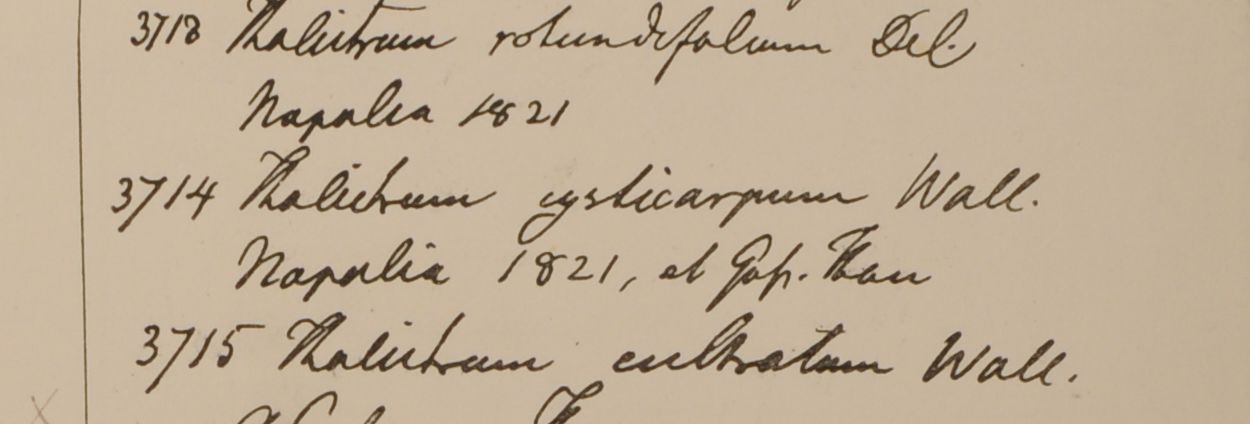 3713 Thalictrum rotundifolium Del.
Napalia 1821
3714 Thalictrum cysticarpum Wall.
Napalia 1821, et Gossain Than
3715 Thalictrum cultratum Wall.